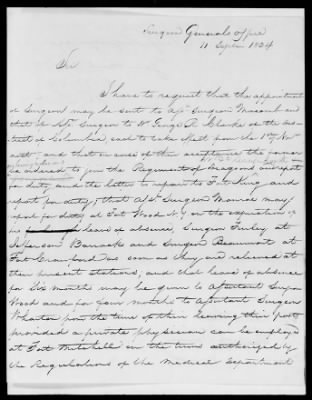 Surgeon Generals office
11 Septr 1834
Sir
I have to request that the appointment
of Surgeon may be sent to Asst Surgeon and
that of Asst Surgeon to Dr of the Dis-
trict of Columbia, each to take effect from the 1st of Novr
next: and that in case of their acceptance the former
be ordered to join the Regiment of Dragoons and report
for duty, and the latter to repair to Fort King and
report for duty; that Asst Surgeon Monroe may
report for duty at Fort Wood N.Y. on the expiration of
his leave of absence, Surgeon Finley at
Jefferson Barracks and Surgeon Beaumont at
Fort Crawford as soon as they are relieved at
their present stations, and that leave of absence
for Six months may be given to Assistant Surgeon
Wood and for four months to Assistant Surgeon
Wharton from the time of their leaving their posts
provided a private physician can be employed
at Fort Mitchell on the terms authorized by
the Regulations of the Medical Department